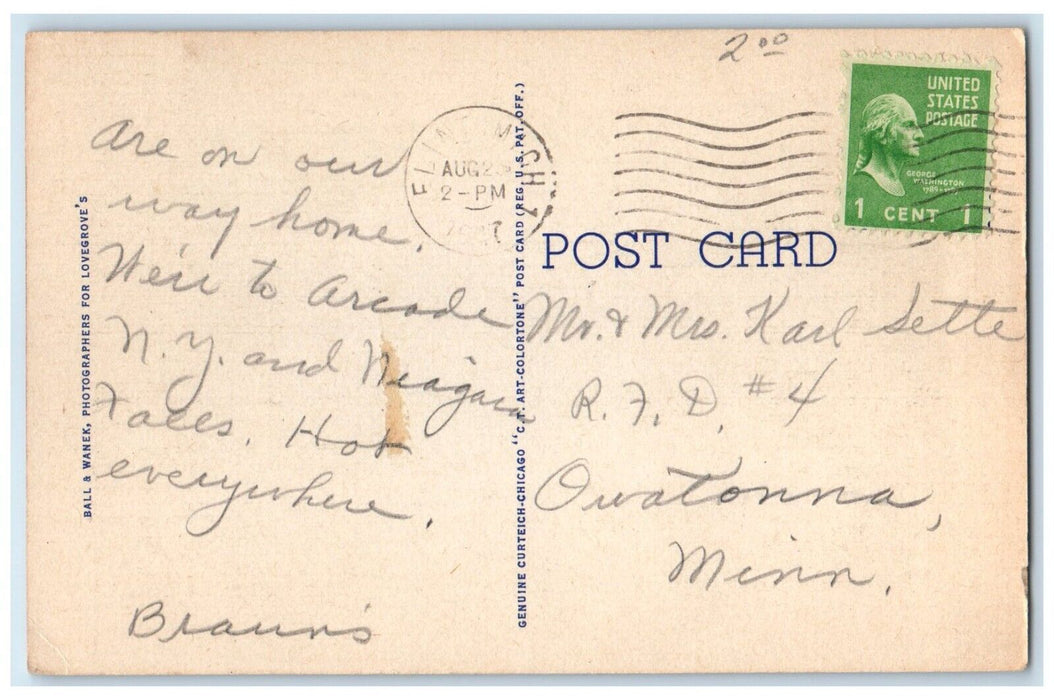 2 00
UNITED
STATES
POSTAGE
GEORGE
WASHINGTON
1 CENT 1
FLINT MICH
AUG 2
2-PM
POST CARD
are on our
way home.
Were to Arcade
N. Y. and Niagara
Falls. Hot
everywhere.
Braun's
Mr. & Mrs. Karl Sette
R. F. D. #4
Owatonna,
Minn.
BALL & WANEK, PHOTOGRAPHERS FOR LOVEGROVE'S
GENUINE CURTEICH-CHICAGO "C. T. ART-COLORTONE" POST CARD (REG. U.S. PAT. OFF.)